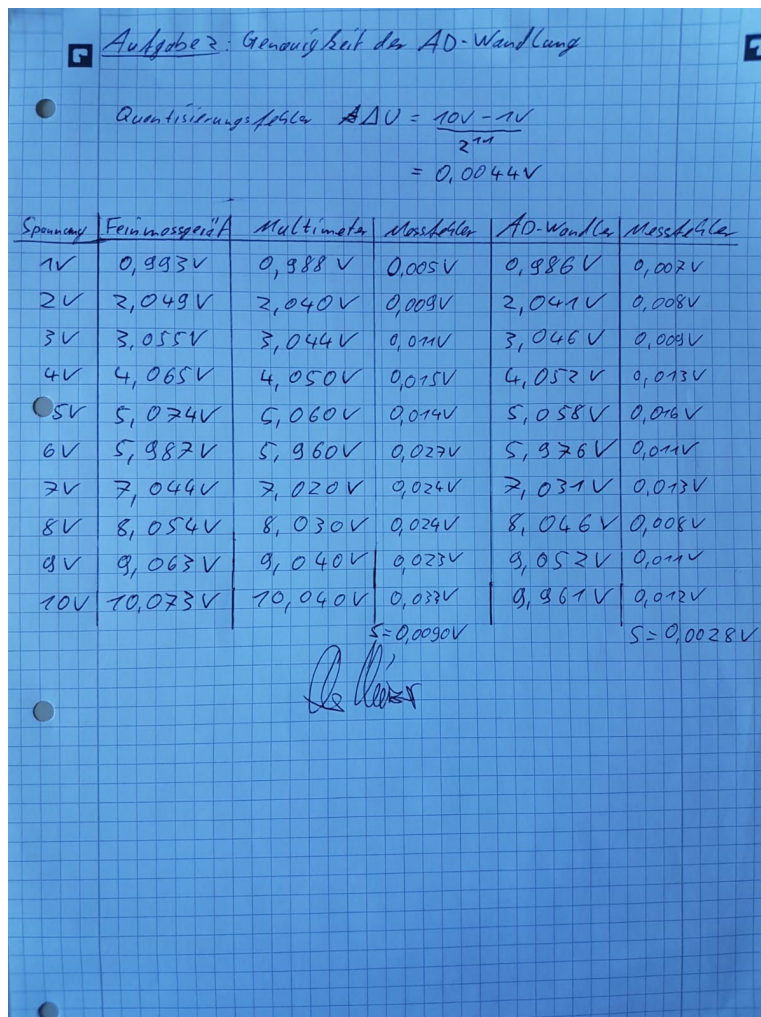 Aufgabe 2: Genauigkeit der AD-Wandlung
Quantisierungsfehler ΔU = 10V - 1V / 2^11
= 0,0044V
Spannung Feinmessgerät Multimeter Messfehler AD-Wandler Messfehler
1V 0,993V 0,988V 0,005V 0,986V 0,007V
2V 2,049V 2,040V 0,009V 2,041V 0,008V
3V 3,055V 3,044V 0,011V 3,046V 0,009V
4V 4,065V 4,050V 0,015V 4,052V 0,013V
5V 5,074V 5,060V 0,014V 5,058V 0,016V
6V 5,987V 5,960V 0,027V 5,976V 0,011V
7V 7,044V 7,020V 0,024V 7,031V 0,013V
8V 8,054V 8,030V 0,024V 8,046V 0,008V
9V 9,063V 9,040V 0,023V 9,052V 0,011V
10V 10,073V 10,040V 0,033V 9,961V 0,012V
S=0,0090V S=0,0028V